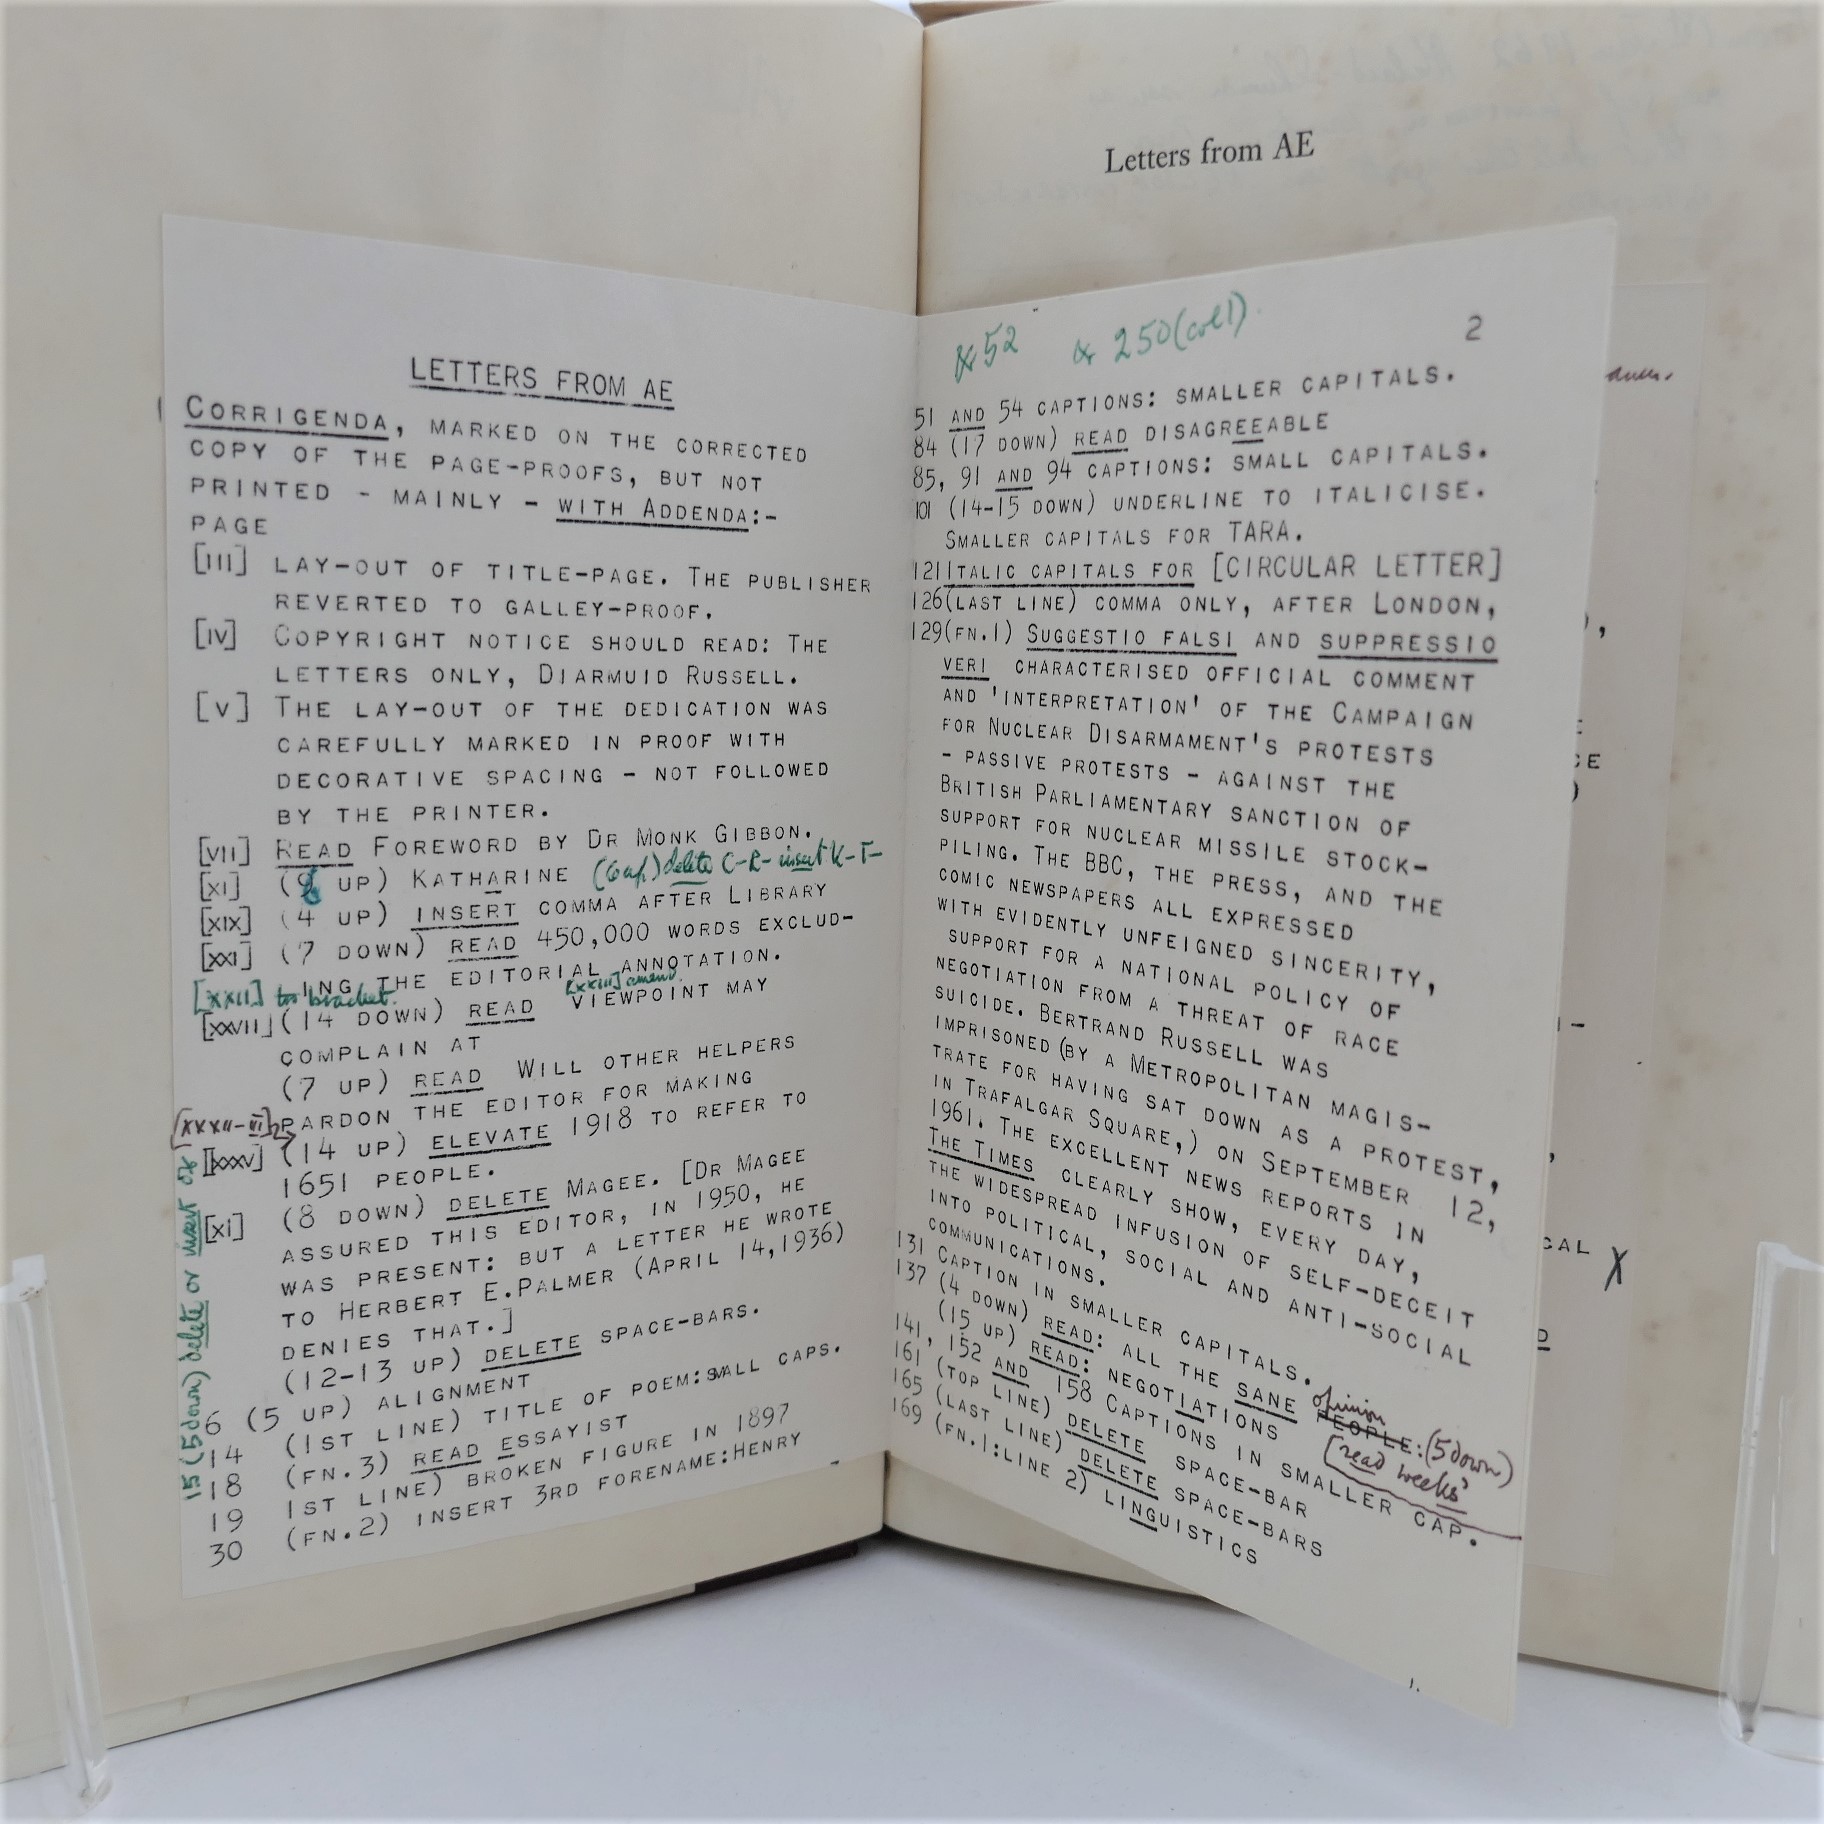 Letters from AE
LETTERS FROM AE
CORRIGENDA, MARKED ON THE CORRECTED
COPY OF THE PAGE-PROOFS, BUT NOT
PRINTED - MAINLY - WITH ADDENDA:-
PAGE
[III] LAY-OUT OF TITLE-PAGE. THE PUBLISHER
REVERTED TO GALLEY-PROOF.
[IV] COPYRIGHT NOTICE SHOULD READ: THE
LETTERS ONLY, DIARMUID RUSSELL.
[V] THE LAY-OUT OF THE DEDICATION WAS
CAREFULLY MARKED IN PROOF WITH
DECORATIVE SPACING - NOT FOLLOWED
BY THE PRINTER.
[VII] READ FOREWORD BY DR MONK GIBBON.
[XI] ( UP) KATHARINE (6 up) delete C-R- insert K-F-
[XIX] (4 UP) INSERT COMMA AFTER LIBRARY
[XXI] (7 DOWN) READ 450,000 WORDS EXCLUD-
ING THE EDITORIAL ANNOTATION.
[XXII] to bracket. [XXIII] amend.
[XXVII] (14 DOWN) READ VIEWPOINT MAY
COMPLAIN AT
(7 UP) READ WILL OTHER HELPERS
PARDON THE EDITOR FOR MAKING
[XXXII-III]
[XXXV] (14 UP) ELEVATE 1918 TO REFER TO
1651 PEOPLE.
[XI] (8 DOWN) DELETE MAGEE. [DR MAGEE
ASSURED THIS EDITOR, IN 1950, HE
WAS PRESENT: BUT A LETTER HE WROTE
TO HERBERT E. PALMER (APRIL 14, 1936)
DENIES THAT.]
(12-13 UP) DELETE SPACE-BARS.
6 (5 UP) ALIGNMENT
14 (1ST LINE) TITLE OF POEM: SMALL CAPS.
18 (FN.3) READ ESSAYIST
19 1ST LINE) BROKEN FIGURE IN 1897
30 (FN.2) INSERT 3RD FORENAME: HENRY
15 (5 down) delete or insert of
& 52 & 250 (col 1)
2
51 AND 54 CAPTIONS: SMALLER CAPITALS.
84 (17 DOWN) READ DISAGREEABLE
85, 91 AND 94 CAPTIONS: SMALL CAPITALS.
101 (14-15 DOWN) UNDERLINE TO ITALICISE.
SMALLER CAPITALS FOR TARA.
121 ITALIC CAPITALS FOR [CIRCULAR LETTER]
126 (LAST LINE) COMMA ONLY, AFTER LONDON,
129 (FN.1) SUGGESTIO FALSI AND SUPPRESSIO
VERI CHARACTERISED OFFICIAL COMMENT
AND 'INTERPRETATION' OF THE CAMPAIGN
FOR NUCLEAR DISARMAMENT'S PROTESTS
- PASSIVE PROTESTS - AGAINST THE
BRITISH PARLIAMENTARY SANCTION OF
SUPPORT FOR NUCLEAR MISSILE STOCK-
PILING. THE BBC, THE PRESS, AND THE
COMIC NEWSPAPERS ALL EXPRESSED
WITH EVIDENTLY UNFEIGNED SINCERITY,
SUPPORT FOR A NATIONAL POLICY OF
NEGOTIATION FROM A THREAT OF RACE
SUICIDE. BERTRAND RUSSELL WAS
IMPRISONED (BY A METROPOLITAN MAGIS-
TRATE FOR HAVING SAT DOWN AS A PROTEST,
IN TRAFALGAR SQUARE,) ON SEPTEMBER 12,
1961. THE EXCELLENT NEWS REPORTS IN
THE TIMES CLEARLY SHOW, EVERY DAY,
THE WIDESPREAD INFUSION OF SELF-DECEIT
INTO POLITICAL, SOCIAL AND ANTI-SOCIAL
COMMUNICATIONS.
131 CAPTION IN SMALLER CAPITALS.
137 (4 DOWN) READ: ALL THE SANE PEOPLE: opinion (5 down)
(15 UP) READ: NEGOTIATIONS [read weeks'
141, 152 AND 158 CAPTIONS IN SMALLER CAP.
161 (TOP LINE) DELETE SPACE-BAR
165 (LAST LINE) DELETE SPACE-BARS
169 (FN.1: LINE 2) LINGUISTICS
CE
CAL X
D